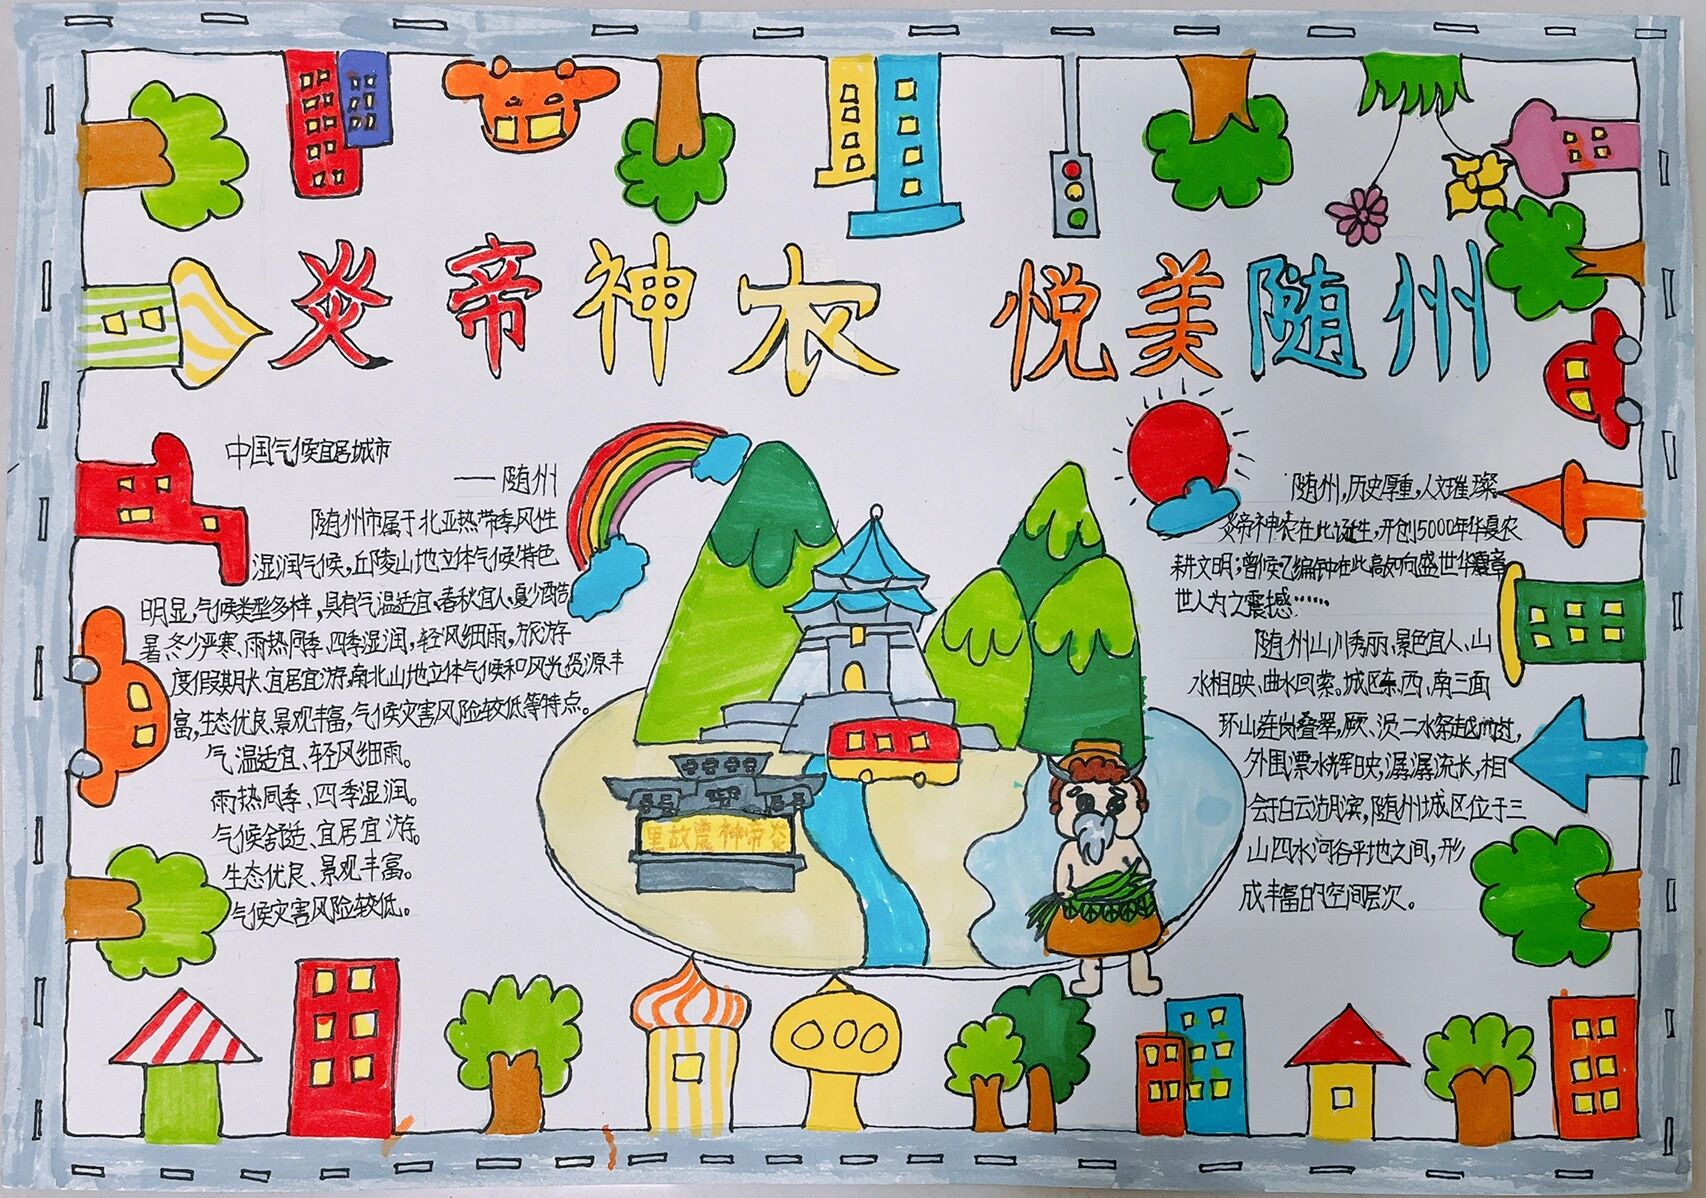 炎帝神农 悦美随州
中国气候宜居城市
——随州
随州市属于北亚热带季风性
湿润气候,丘陵山地立体气候特色
明显,气候类型多样,具有气温适宜、春秋宜人、夏少酷
暑、冬少严寒、雨热同季、四季湿润,轻风细雨,旅游
度假期长、宜居宜游,南北山地立体气候和风光资源丰
富,生态优良、景观丰富,气候灾害风险较低等特点。
气温适宜、轻风细雨。
雨热同季、四季湿润。
气候舒适、宜居宜游。
生态优良、景观丰富。
气候灾害风险较低。
里故農神帝炎
随州,历史厚重,人文璀璨。
炎帝神农在此诞生,开创5000年华夏农
耕文明;曾侯乙编钟在此高奏响盛世华章
世人为之震撼……
随州山川秀丽、景色宜人、山
水相映、曲水回萦。城区东、西、南三面
环山连岗叠翠,㵐、涢二水穿越而过,
外围漂水辉映,潺潺流长,相
会于白云湖滨,随州城区位于三
山四水河谷平地之间,形
成丰富的空间层次。